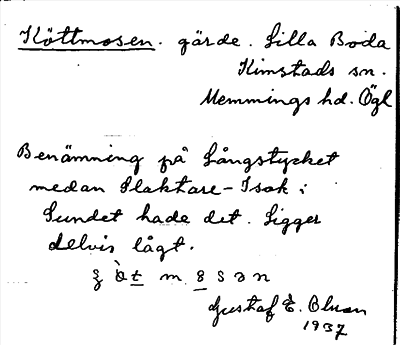 Köttmosen. gärde. Lilla Boda
Kimstads sn.
Memmings hd. Ögl
Benämning på Långstycket
medan Slaktare-Isak i
Sundet hade det. Ligger
delvis lågt.
Gustaf E.
1937